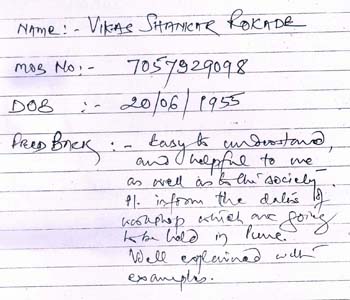 NAME:- VIKAS SHANKAR ROKADE
MOB NO:- 7057929098
DOB :- 20/06/1955
FEED BACK :- Easy to understand,
and helpful to me
as well as to the society.
Pl. inform the dates of
workshop which are going
to be held in Pune.
Well explained with
examples.